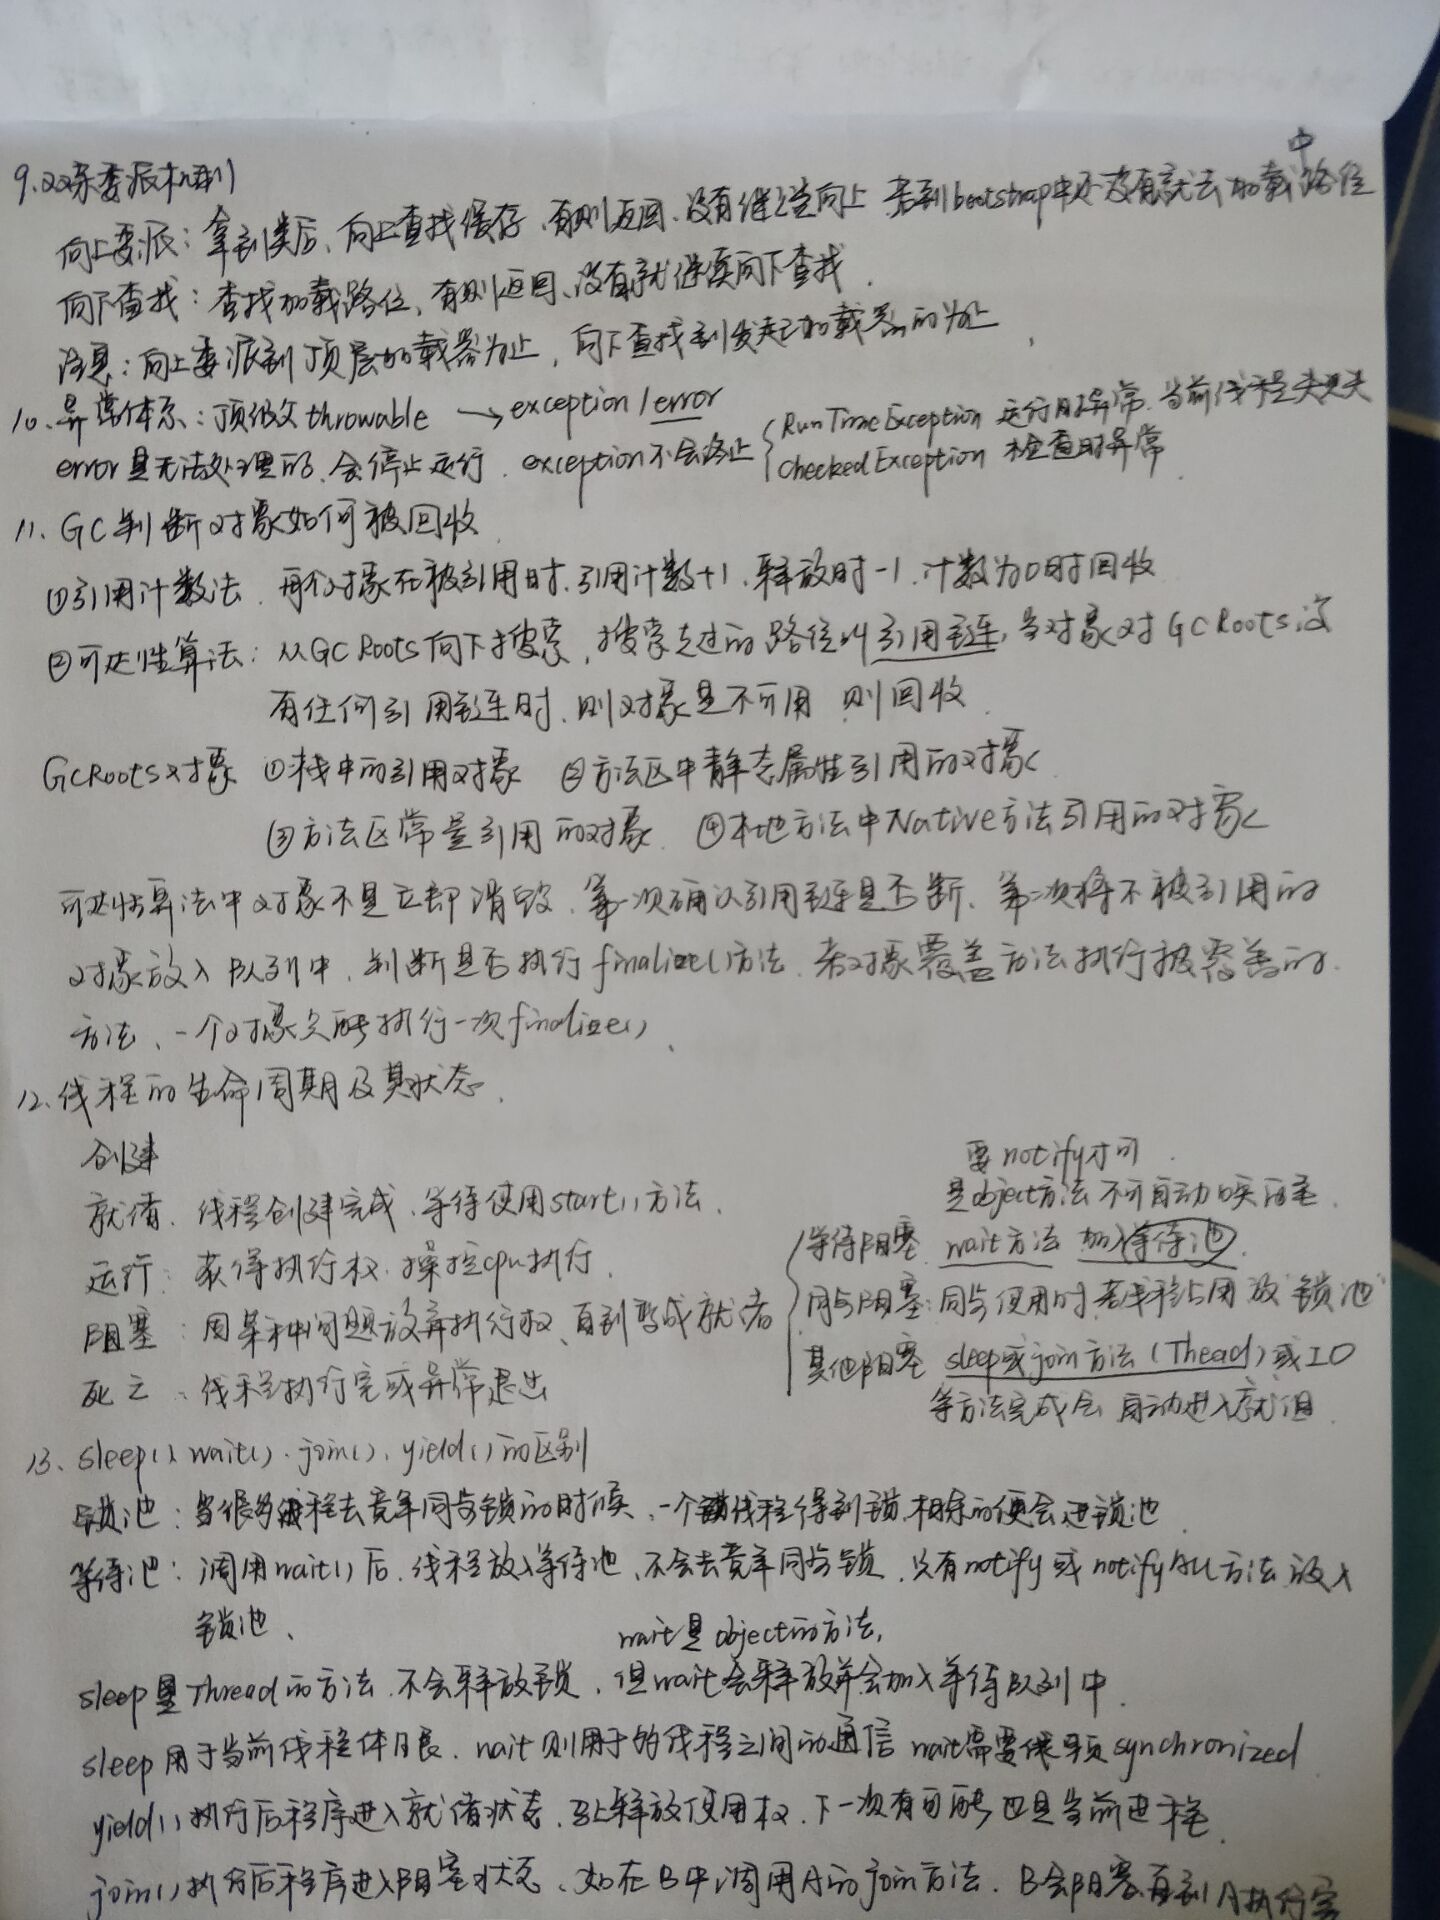 9.双亲委派机制
向上委派：拿到类后、向上查找缓存、有则返回、没有继续向上 若到bootstrap中还没有就去加载路径中
向下查找：查找加载路径、有则返回、没有就继续向下查找.
注意：向上委派到顶层加载器为止，向下查找到发起加载器的为止、
10、异常体系：顶级父throwable → exception / error
error是无法处理的、会停止运行、exception不会终止
RunTimeException 运行时异常、当前线程失败
CheckedException 检查时异常
11、GC判断对象如何被回收
①引用计数法、每个对象在被引用时、引用计数+1、释放时-1、计数为0时回收
②可达性算法：从GC Roots向下搜索，搜索走过的路径叫引用链，当对象对GC Roots没
有任何引用链时、则对象是不可用 则回收
GCRoots对象 ①栈中的引用对象 ②方法区中静态属性引用的对象
③方法区常量引用的对象、 ④本地方法中Native方法引用的对象
可达性算法中对象不是立即消毁、第一次确认引用链是否断、第二次将不被引用的
对象放入队列中、判断是否执行finalize()方法、若对象覆盖方法执行被覆盖的
方法、一个对象只能执行一次finalize()、
12、线程的生命周期及其状态
创建
就绪、线程创建完成、等待使用start()方法、
运行：获得执行权、操控cpu执行、
阻塞：因某种问题放弃执行权、直到变成就绪
死亡：线程执行完或异常退出
要notify才可
是object方法 不可自动唤醒
等待阻塞 wait方法 加入等待池
同步阻塞：同步使用时 若线程占用 放"锁池"
其他阻塞 sleep或join方法（Thead）或IO
等方法完成会 自动进入就绪
13、sleep()、wait()、join()、yield()的区别
锁池：当很多线程去竞争同步锁的时候、一个线程得到锁、相余的便会进锁池
等待池：调用wait()后、线程放入等待池、不会去竞争同步锁、只有notify或notifyALL方法 放入
锁池、
wait是object的方法，
sleep是Thread的方法、不会释放锁、但wait会释放并会加入等待队列中、
sleep用于当前线程休眠、wait则用于的线程之间的通信 wait需要依赖synchronized
yield()执行后程序进入就绪状态、马上释放使用权、下一次有可能也是当前进程
join()执行后程序进入阻塞状态、如在B中调用A的join方法、B会阻塞直到A执行完